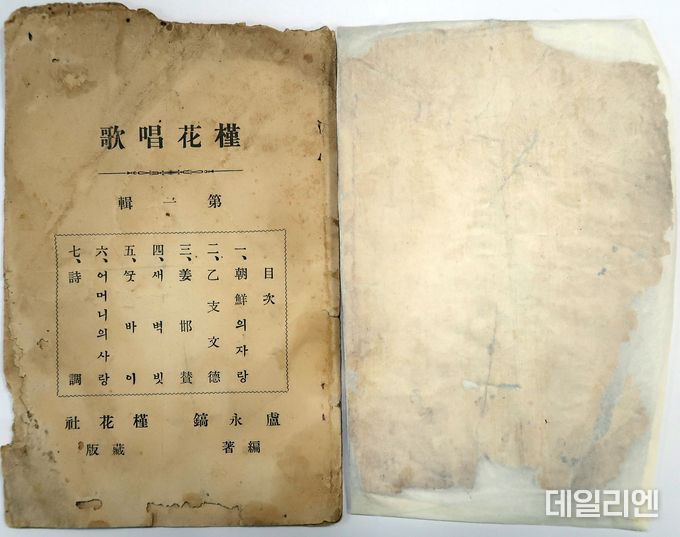 槿花唱歌
第一輯
目次
一、朝鮮의자랑
二、乙支文德
三、姜邯賛
四、새벽빗
五、
六、어머니의사랑
七、詩調
盧永鎬 編著
槿花社 藏版
데일리엔